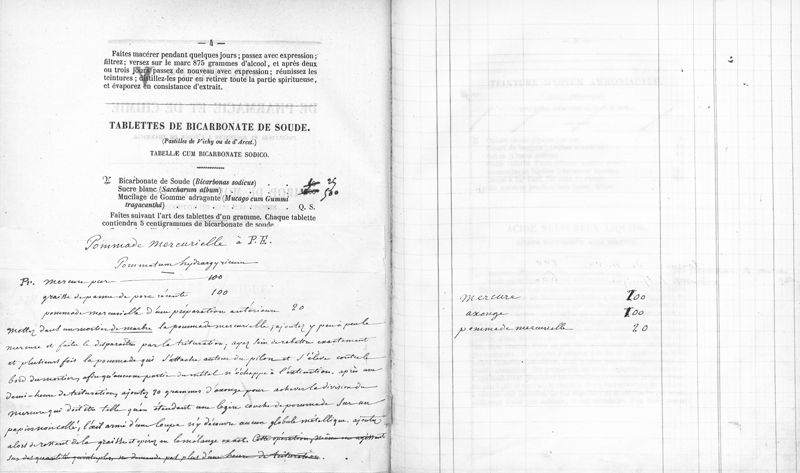 — 4 —
Faites macérer pendant quelques jours; passez avec expression;
filtrez; versez sur le marc 875 grammes d'alcool, et après deux
ou trois jours passez de nouveau avec expression; réunissez les
teintures; distillez-les pour en retirer toute la partie spiritueuse,
et évaporez en consistance d'extrait.
TABLETTES DE BICARBONATE DE SOUDE.
(Pastilles de Vichy ou de d'Arcet.)
TABELLÆ CUM BICARBONATE SODICO.
Bicarbonate de Soude (Bicarbonas sodicus) . . . 25
Sucre blanc (Saccharum album) . . . . 500
Mucilage de Gomme adragante (Mucago cum Gummi
tragacanthâ) . . . . . . . Q. S.
Faites suivant l'art des tablettes d'un gramme. Chaque tablette
contiendra 5 centigrammes de bicarbonate de soude.
Pommade mercurielle à P. E.
Pommatum hydrargyricum
Pr. mercure pur 100
graisse de panne de porc récente 100
pommade mercurielle d'une préparation antérieure 20
mettez dans un mortier de marbre la pommade mercurielle, ajoutez y peu à peu le
mercure et faites le disparaître par la trituration, ayez soin de rabattre exactement
et plusieurs fois la pommade qui s'attache autour du pilon et s'élève contre le
bord du mortier, afin qu'aucune partie du métal n'échappe à l'extinction. après une
demi-heure de trituration, ajoutez 30 grammes d'axonge pour achever la division du
mercure qui doit être telle qu'en étendant une légère couche de pommade sur un
papier non collé, l'œil armé d'une loupe n'y découvre aucun globule métallique, ajoutez
alors le restant de la graisse et opérez en le mélange exact. Cette opération, même en agissant
sur des quantités quintuples, ne demande pas plus d'une heure de trituration.
mercure 100
axonge 100
pommade mercurielle 20